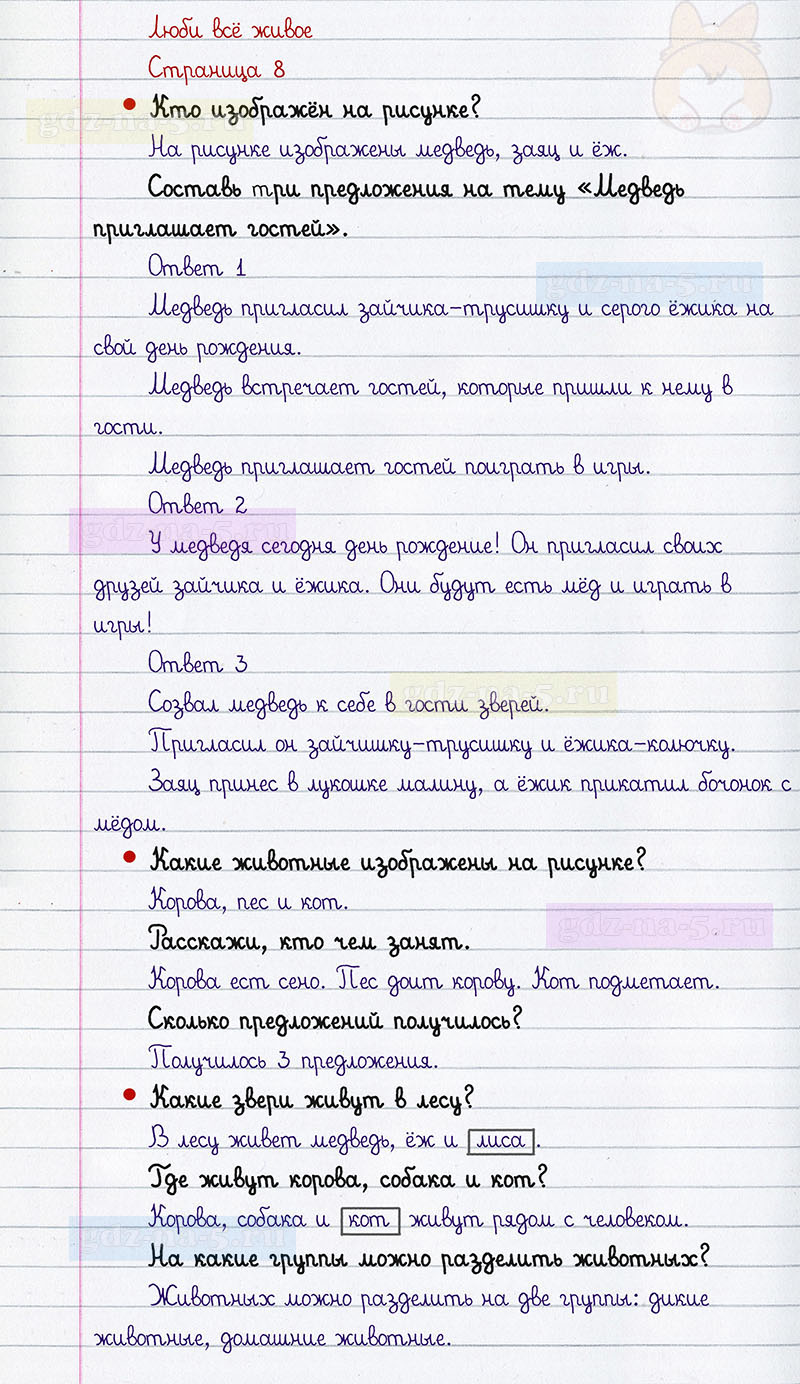 Люби всё живое
Страница 8
Кто изображён на рисунке?
gdz-na-5.ru
На рисунке изображены медведь, заяц и ёж.
Составь три предложения на тему «Медведь
приглашает гостей».
Ответ 1
gdz-na-5.ru
Медведь пригласил зайчика-трусишку и серого ёжика на
свой день рождения.
Медведь встречает гостей, которые пришли к нему в
гости.
Медведь приглашает гостей поиграть в игры.
Ответ 2
gdz-na-5.ru
У медведя сегодня день рождение! Он пригласил своих
друзей зайчика и ёжика. Они будут есть мёд и играть в
игры!
Ответ 3
gdz-na-5.ru
Созвал медведь к себе в гости зверей.
Пригласил он зайчишку-трусишку и ёжика-колючку.
Заяц принес в лукошке малину, а ёжик прикатил бочонок с
мёдом.
Какие животные изображены на рисунке?
Корова, пес и кот.
gdz-na-5.ru
Расскажи, кто чем занят.
Корова ест сено. Пес доит корову. Кот подметает.
Сколько предложений получилось?
Получилось 3 предложения.
Какие звери живут в лесу?
В лесу живет медведь, ёж и лиса.
Где живут корова, собака и кот?
Корова, собака и кот живут рядом с человеком.
gdz-na-5.ru
На какие группы можно разделить животных?
Животных можно разделить на две группы: дикие
животные, домашние животные.